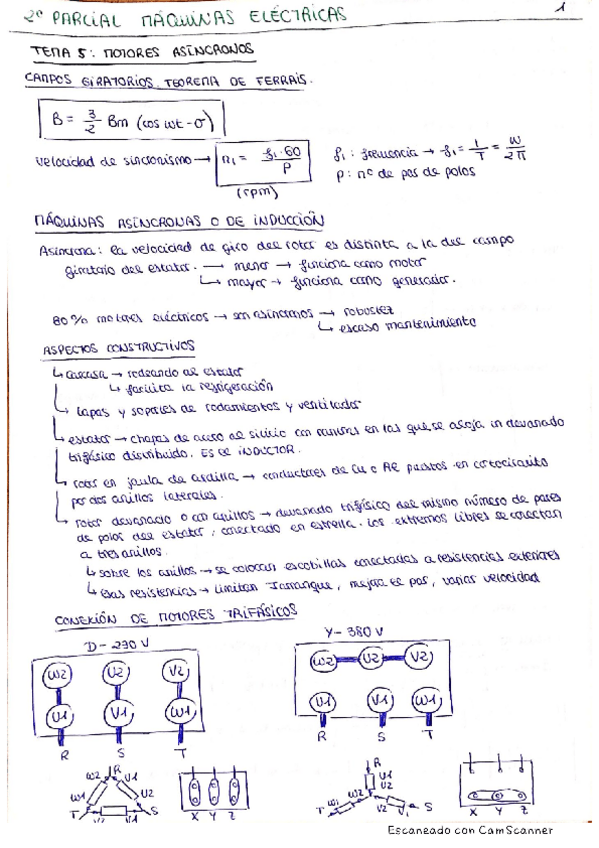 2º PARCIAL MÁQUINAS ELÉCTRICAS
1
TEMA 5: MOTORES ASÍNCRONOS
CAMPOS GIRATORIOS. TEOREMA DE FERRAIS.
B = 3/2 Bm (cos wt - σ)
velocidad de sincronismo → n1 = f1·60 / P (rpm)
f1: frecuencia → f1 = 1/T = W/2π
p: nº de pares de polos
MÁQUINAS ASÍNCRONAS O DE INDUCCIÓN
Asíncrona: la velocidad de giro del rotor es distinta a la del campo
giratorio del estator. → menor → funciona como motor
↳ mayor → funciona como generador.
80% motores eléctricos → son asíncronos → robustez
↳ escaso mantenimiento
ASPECTOS CONSTRUCTIVOS
↳ carcasa → rodeando al estator
↳ facilita la refrigeración
↳ tapas y soportes de rodamientos y ventilador
↳ estator → chapas de acero al silicio con ranuras en las que se aloja un devanado
trifásico distribuido. Es el INDUCTOR.
↳ rotor en jaula de ardilla → conductores de Cu o Al puestos en cortocircuito
por dos anillos laterales.
↳ rotor devanado o con anillos → devanado trifásico del mismo número de pares
de polos del estator, conectado en estrella. Los extremos libres se conectan
a tres anillos.
↳ sobre los anillos → se colocan escobillas conectadas a resistencias exteriores
↳ esas resistencias → limitan Iarranque, mejora el par, varias velocidad
CONEXIÓN DE MOTORES TRIFÁSICOS
D - 230 V
Y - 380 V
W2 U2 V2
W2 U2 V2
U1 V1 W1
U1 V1 W1
R S T
R S T
R
W2 U1
W1 U2
T S
V2 V1
X Y Z
R
U1
U2
W2
T W1 V2 V1 S
X Y Z
Escaneado con CamScanner